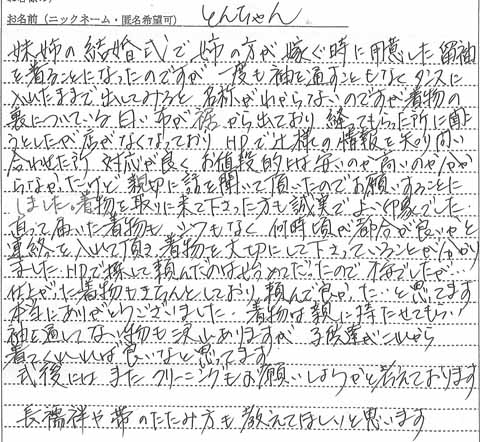 お名前（ニックネーム・匿名希望可） とんちゃん
妹姉の結婚式で姉の方が嫁ぐ時に用意した留袖
を着ることになったのですが一度も袖を通すこともなくタンスに
入れたままで出してみると名称がわからないのですが着物の
裏についている白い布が裾から出ており縫ってもらった所に聞こ
うとしたが店がなくなっておりHPで辻様の情報を知り問い
合わせた所対応が良くお値段的には安いのか高いのか分か
らなかったけど親切に話を聞いて頂いたのでお願いすることに
しました。着物を取りに来て下さった方も誠実でよい印象でした。
直って届いた着物もいつもなく何時頃が都合が良いかと
連絡を入れて頂き着物を大切にして下さっていることが分かり
ました。HPで探して頼んだのは始めてだったので不安でしたが
仕上がった着物もきちんとしており頼んで良かった…と思ってます
本当にありがとうございました。着物は親に持たせてもらい
袖を通してない物も沢山ありますが子供達がこれから
着てくれれば良いなと思ってます
式後にはまたクリーニングもお願いしようかと考えております
長襦袢や帯のたたみ方も教えてほしいと思います